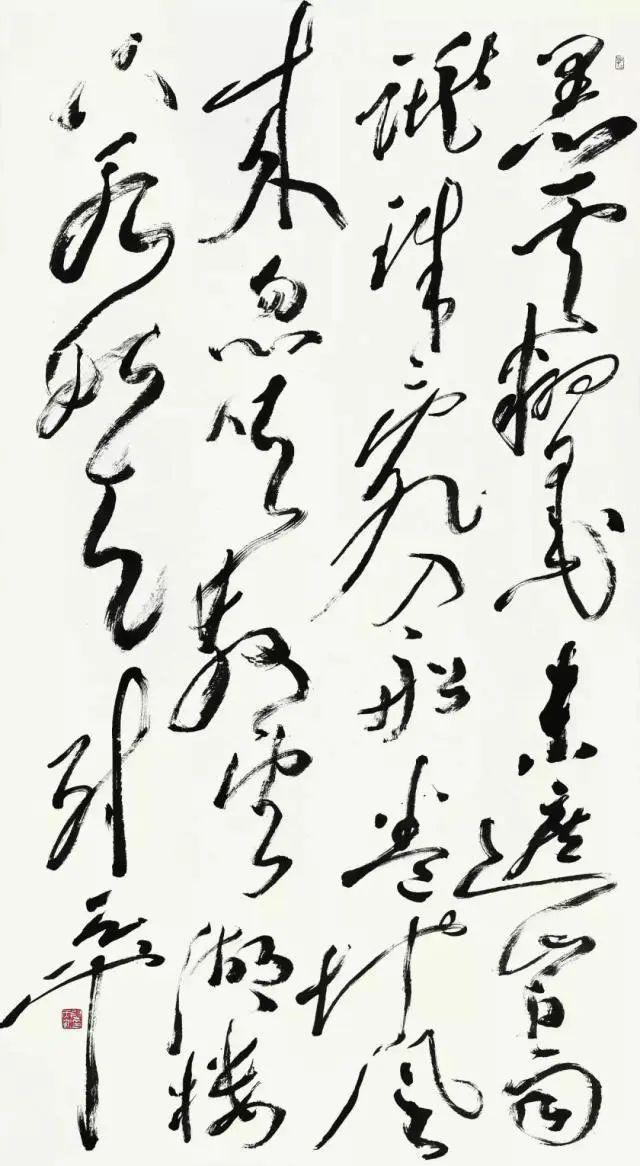 黑云翻墨未遮山白雨
跳珠乱入船卷地风
来忽吹散望湖楼
下水如天